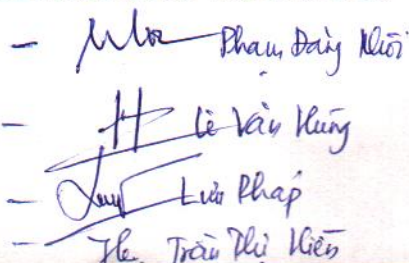 - Phạm Đăng Nhời
- Lê Văn Hùng
- Lưu Pháp
- Trần Thị Hiền